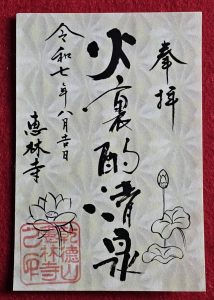 奉拝
火裏酌清泉
令和七年八月吉日
恵林寺